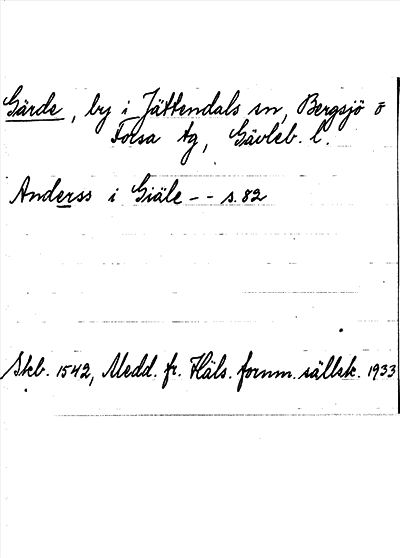 Gärde, by i Jättendals sn, Bergsjö o
Forsa tg, Gävleb. l.
Anderss i Giäle -- s. 82
Skb. 1542, Medd. fr. Häls. fornm. sällsk. 1933